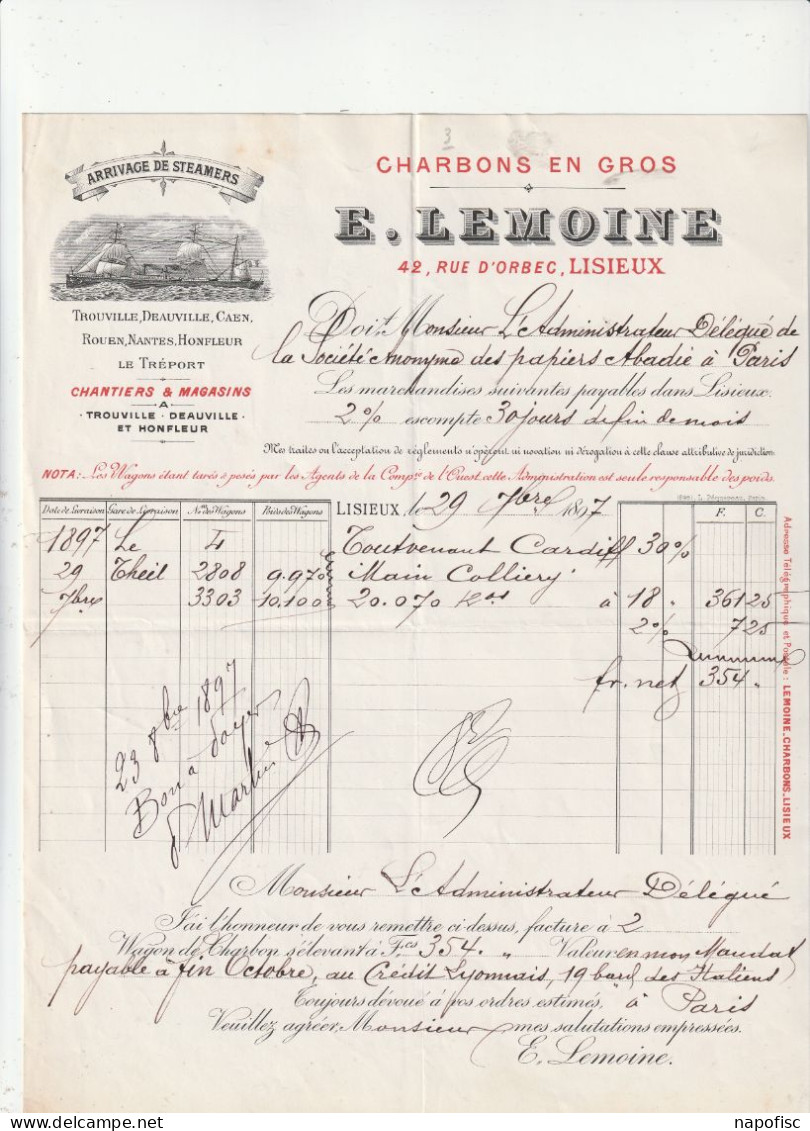 3
ARRIVAGE DE STEAMERS
TROUVILLE, DEAUVILLE, CAEN,
ROUEN, NANTES, HONFLEUR
LE TRÉPORT
CHANTIERS & MAGASINS
A
TROUVILLE - DEAUVILLE -
ET HONFLEUR
CHARBONS EN GROS
E. LEMOINE
42, RUE D'ORBEC, LISIEUX
Doit Monsieur L'Administrateur Délégué de
la Société Anonyme des papiers Abadie à Paris
Les marchandises suivantes payables dans Lisieux.
2% escompte 30 jours de fin de mois
Mes traites ou l'acceptation de règlements n'opèrent ni novation ni dérogation à cette clause attributive de juridiction.
NOTA: Les Wagons étant tarés & pesés par les Agents de la Compie de l'Ouest, cette Administration est seule responsable des poids.
Date de Livraison Gare de Livraison Nos des Wagons Poids des Wagons LISIEUX, le 29 7bre 1897 F. C.
1897 Le 4 Toutvenant Cardiff 30%
29 Theil 2808 9.970 Main Colliery
7bre 3303 10.100 20.070 Kos à 18 " 361 25
2% 7 25
fr. net 354 "
23 8bre 1897
Bon à payer
Adresse Télégraphique et Postale: LEMOINE_CHARBONS_LISIEUX
Monsieur L'Administrateur Délégué
J'ai l'honneur de vous remettre ci-dessus, facture à 2
Wagon de Charbon s'élevant à Fcs 354. " Valeur en mon Mandat
payable à fin Octobre, au Crédit Lyonnais, 19 boul des Italiens
Toujours dévoué à vos ordres estimés, à Paris
Veuillez agréer, Monsieur mes salutations empressées.
E. Lemoine.
delcampe.net
napofisc